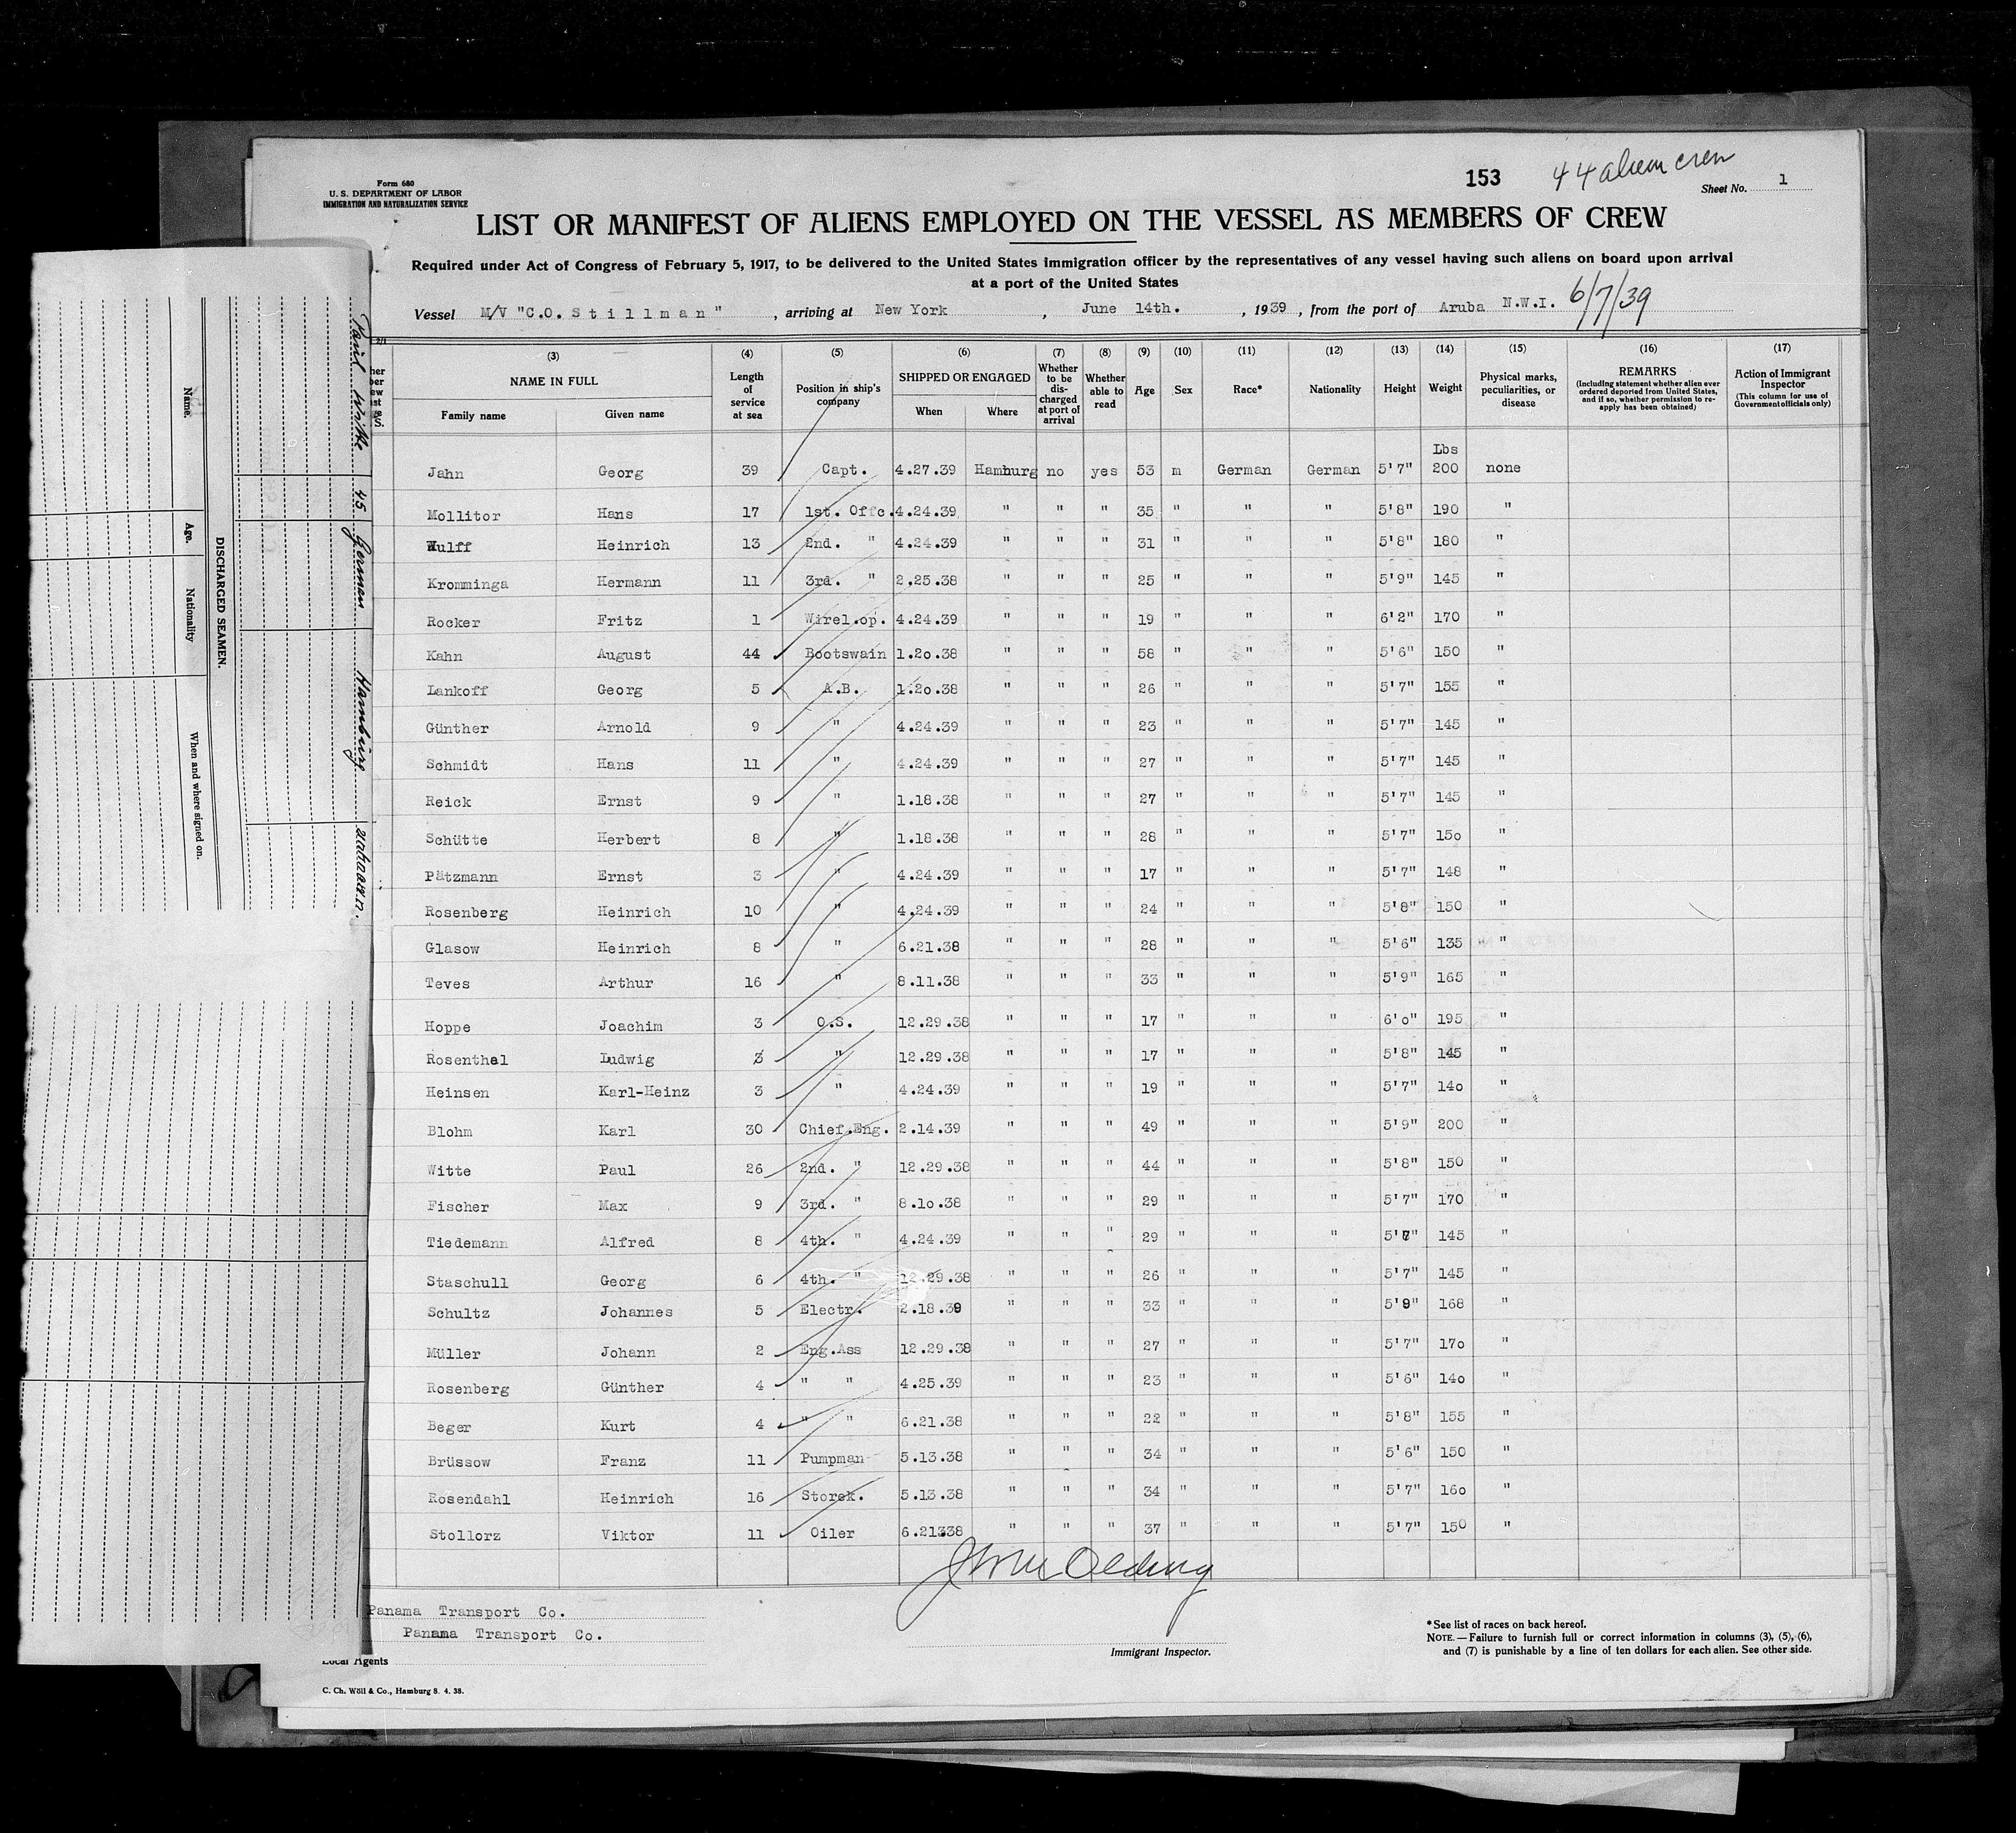 153 44 alien crew
Form 680
U. S. DEPARTMENT OF LABOR
IMMIGRATION AND NATURALIZATION SERVICE
Sheet No. 1
LIST OR MANIFEST OF ALIENS EMPLOYED ON THE VESSEL AS MEMBERS OF CREW
Required under Act of Congress of February 5, 1917, to be delivered to the United States immigration officer by the representatives of any vessel having such aliens on board upon arrival
at a port of the United States
Vessel M/V "C.O. Stillman", arriving at New York, June 14th., 1939, from the port of Aruba N.W.I. 6/7/39
(3) (4) (5) (6) (7) (8) (9) (10) (11) (12) (13) (14) (15) (16) (17)
NAME IN FULL
Family name Given name
Length of service at sea
Position in ship's company
SHIPPED OR ENGAGED
When Where
Whether to be discharged at port of arrival
Whether able to read
Age
Sex
Race*
Nationality
Height
Weight
Physical marks, peculiarities, or disease
REMARKS
(Including statement whether alien ever ordered deported from United States, and if so, whether permission to reapply has been obtained)
Action of Immigrant Inspector
(This column for use of Government officials only)
Lbs
Jahn Georg 39 Capt. 4.27.39 Hamburg no yes 53 m German German 5'7" 200 none
Mollitor Hans 17 1st. Offc. 4.24.39 " " " 35 " " " 5'8" 190 "
Wulff Heinrich 13 2nd. " 4.24.39 " " " 31 " " " 5'8" 180 "
Kromminga Hermann 11 3rd. " 2.25.38 " " " 25 " " " 5'9" 145 "
Rocker Fritz 1 Wirel.op. 4.24.39 " " " 19 " " " 6'2" 170 "
Kahn August 44 Bootswain 1.20.38 " " " 58 " " " 5'6" 150 "
Lankoff Georg 5 A.B. 1.20.38 " " " 26 " " " 5'7" 155 "
Günther Arnold 9 " 4.24.39 " " " 23 " " " 5'7" 145 "
Schmidt Hans 11 " 4.24.39 " " " 27 " " " 5'7" 145 "
Reick Ernst 9 " 1.18.38 " " " 27 " " " 5'7" 145 "
Schütte Herbert 8 " 1.18.38 " " " 28 " " " 5'7" 150 "
Pätzmann Ernst 3 " 4.24.39 " " " 17 " " " 5'7" 148 "
Rosenberg Heinrich 10 " 4.24.39 " " " 24 " " " 5'8" 150 "
Glasow Heinrich 8 " 6.21.38 " " " 28 " " " 5'6" 135 "
Teves Arthur 16 " 8.11.38 " " " 33 " " " 5'9" 165 "
Hoppe Joachim 3 O.S. 12.29.38 " " " 17 " " " 6'0" 195 "
Rosenthal Ludwig 3 " 12.29.38 " " " 17 " " " 5'8" 145 "
Heinsen Karl-Heinz 3 " 4.24.39 " " " 19 " " " 5'7" 140 "
Blohm Karl 30 Chief.Eng. 2.14.39 " " " 49 " " " 5'9" 200 "
Witte Paul 26 2nd. " 12.29.38 " " " 44 " " " 5'8" 150 "
Fischer Max 9 3rd. " 8.10.38 " " " 29 " " " 5'7" 170 "
Tiedemann Alfred 8 4th. " 4.24.39 " " " 29 " " " 145 "
Staschull Georg 6 4th. " 12.29.38 " " " 26 " " " 5'7" 145 "
Schultz Johannes 5 Electr. 2.18.39 " " " 33 " " " 5'9" 168 "
Müller Johann 2 Eng.Ass 12.29.38 " " " 27 " " " 5'7" 170 "
Rosenberg Günther 4 " " 4.25.39 " " " 23 " " " 5'6" 140 "
Beger Kurt 4 " " 6.21.38 " " " 22 " " " 5'8" 155 "
Brüssow Franz 11 Pumpman 5.13.38 " " " 34 " " " 5'6" 150 "
Rosendahl Heinrich 16 Storek. 5.13.38 " " " 34 " " " 5'7" 160 "
Stollorz Viktor 11 Oiler 6.21338 " " " 37 " " " 5'7" 150 "
Panama Transport Co.
Panama Transport Co.
Local Agents
Immigrant Inspector.
*See list of races on back hereof.
NOTE.—Failure to furnish full or correct information in columns (3), (5), (6),
and (7) is punishable by a fine of ten dollars for each alien. See other side.
C. Ch. Wöll & Co., Hamburg 8. 4. 38.
Paul Witte 45 German Hamburg
DISCHARGED SEAMEN.
Name. Age. Nationality When and where signed on.